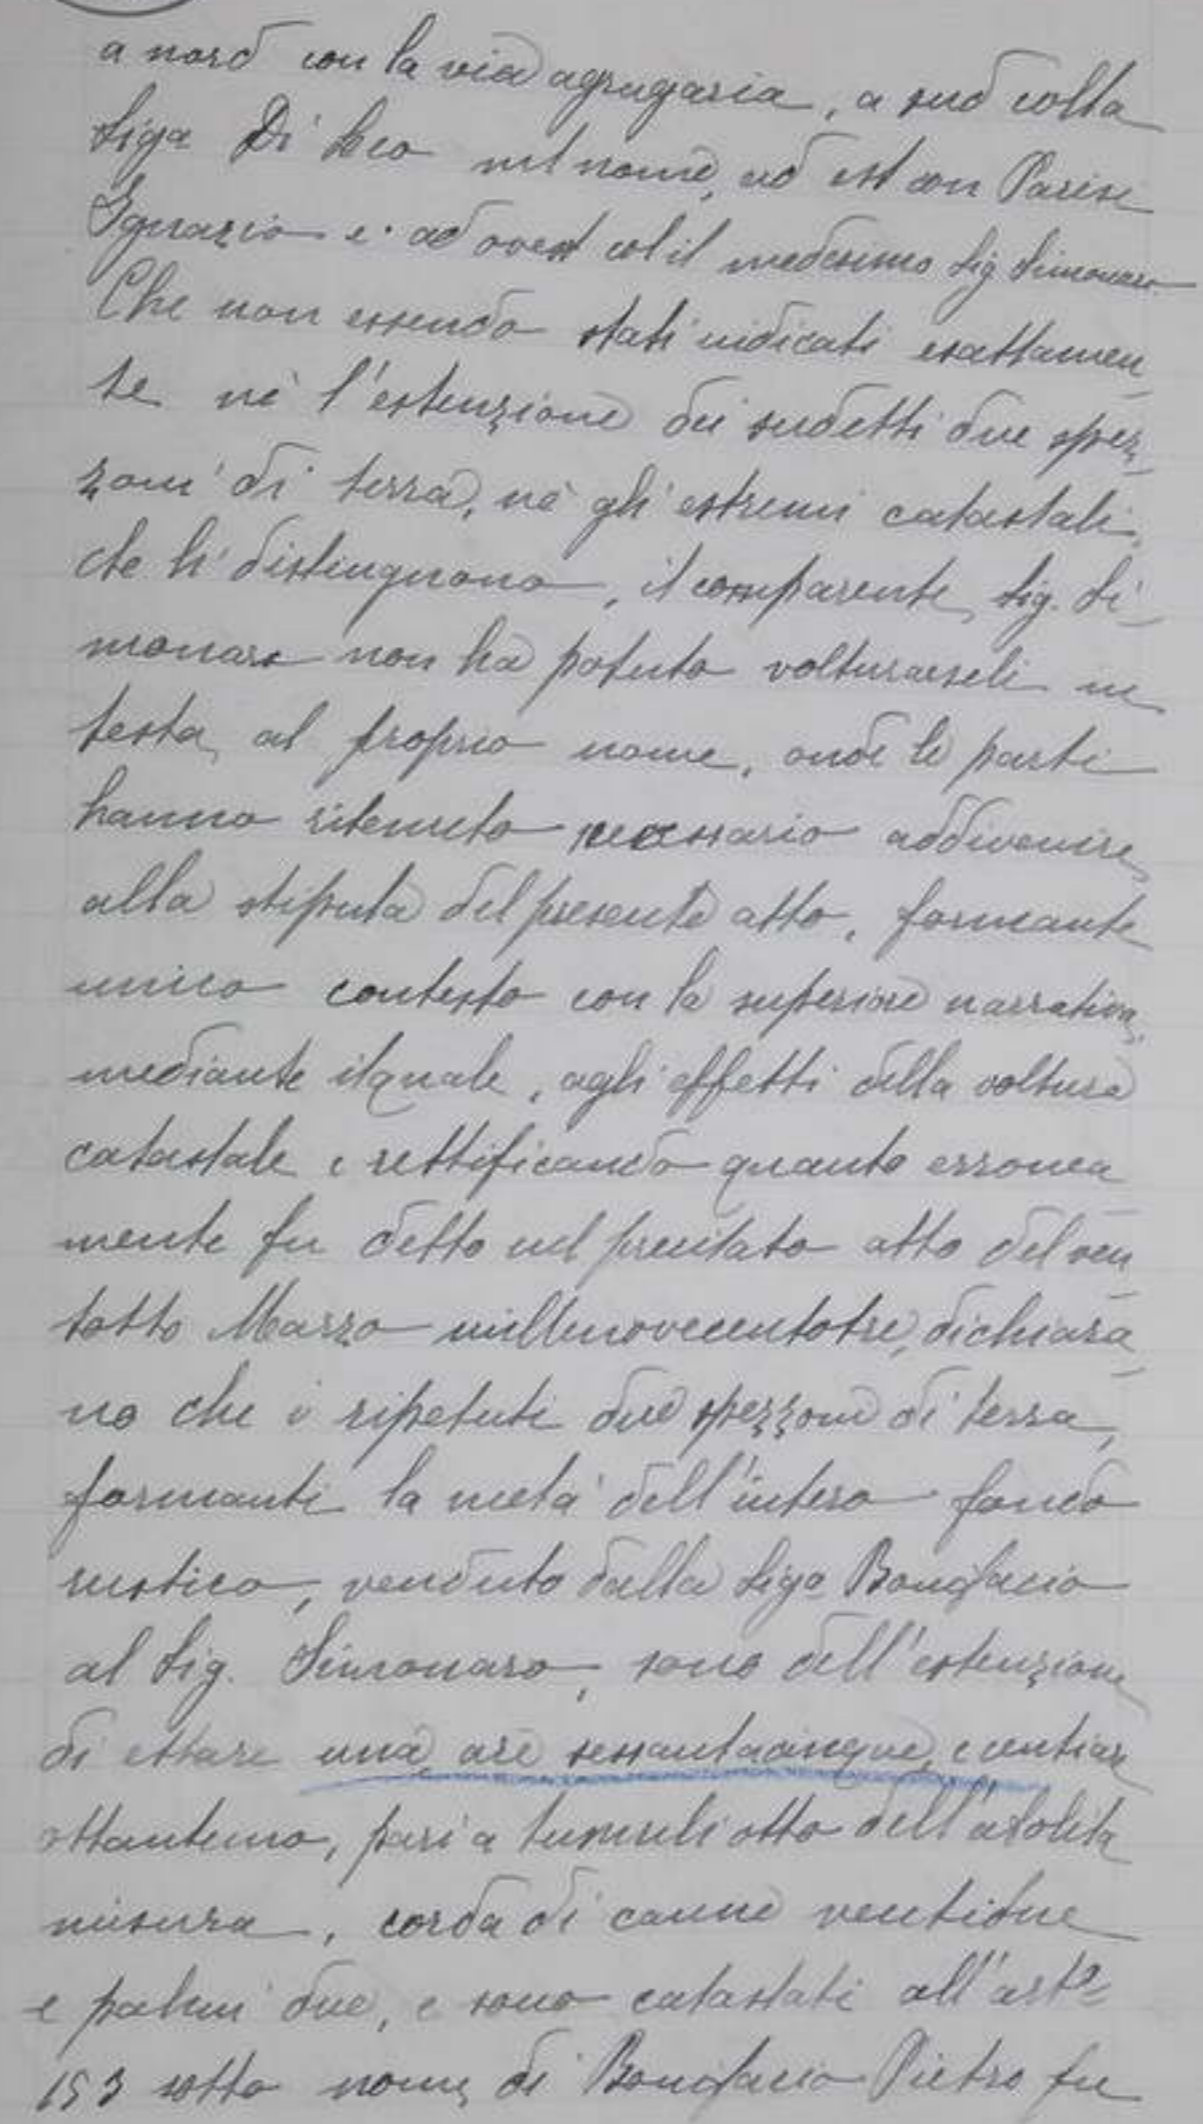 a nord con la via agrugaria, a sud colla
Siga Di Leo nel nome, ad est con Parisi
Ignazio e ad ovest col il medesimo Sig Simonaro
Che non essendo stati indicati esattamen
te nè l'estenzione dei sudetti due spez
zoni di terra, nè gli estremi catastali
che li distinguono, il comparente Sig. Si
monaro non ha potuto volturarseli in
testa al proprio nome, onde le parti
hanno ritenuto necessario addivenire
alla stipula del presente atto, formante
unico contesto con la superiore narrativa,
mediante il quale, agli effetti della voltura
catastale e rettificando quanto erronea
mente fu detto nel precitato atto del ven
totto Marzo millenovecentotre, dichiara
no che i ripetuti due spezzoni di terra,
formanti la metà dell'intero fondo
rustico, venduto dalla Siga Bongfacio
al Sig. Simonaro, sono dell'estenzione
di ettare una are sessantacinque e centiare
ottantuno, pari a tumuli otto dell'abolita
misura, corda di canne ventidue
e palmi due, e sono catastati all'arto
153 sotto nome di Bongfacio Pietro fu